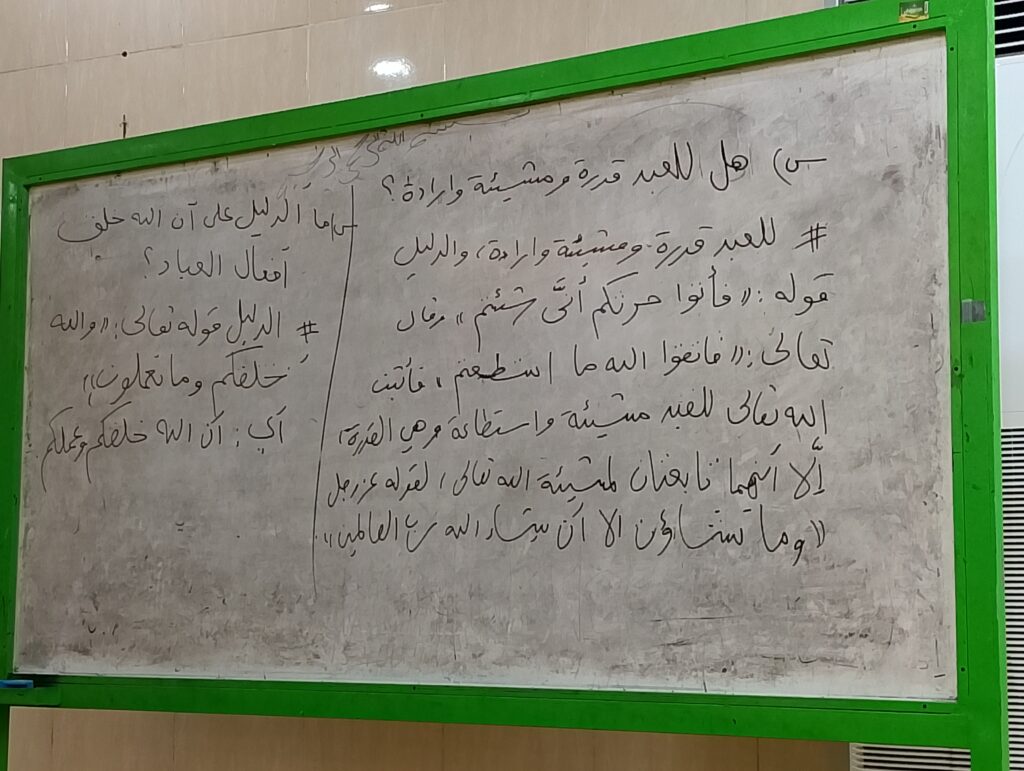 بسم الله الرحمن الرحيم
س) هل للعبد قدرة ومشيئة وإرادة؟
# للعبد قدرة ومشيئة وإرادة، والدليل
قوله: «فأتوا حرثكم أنَّى شئتم» وقال
تعالى: «فاتقوا الله ما استطعتم، فأثبت
الله تعالى للعبد مشيئة واستطاعة وهي القدرة،
إلَّا أنهما تابعتان لمشيئة الله تعالى، لقوله عز وجل
«وما تشاؤن الا أن يشاء الله رب العالمين»
س) ما الدليل على أن الله خلق
أفعال العباد؟
# الدليل قوله تعالى: «والله
خلقكم وما تعملون»
أي: أن الله خلقكم وعملكم.